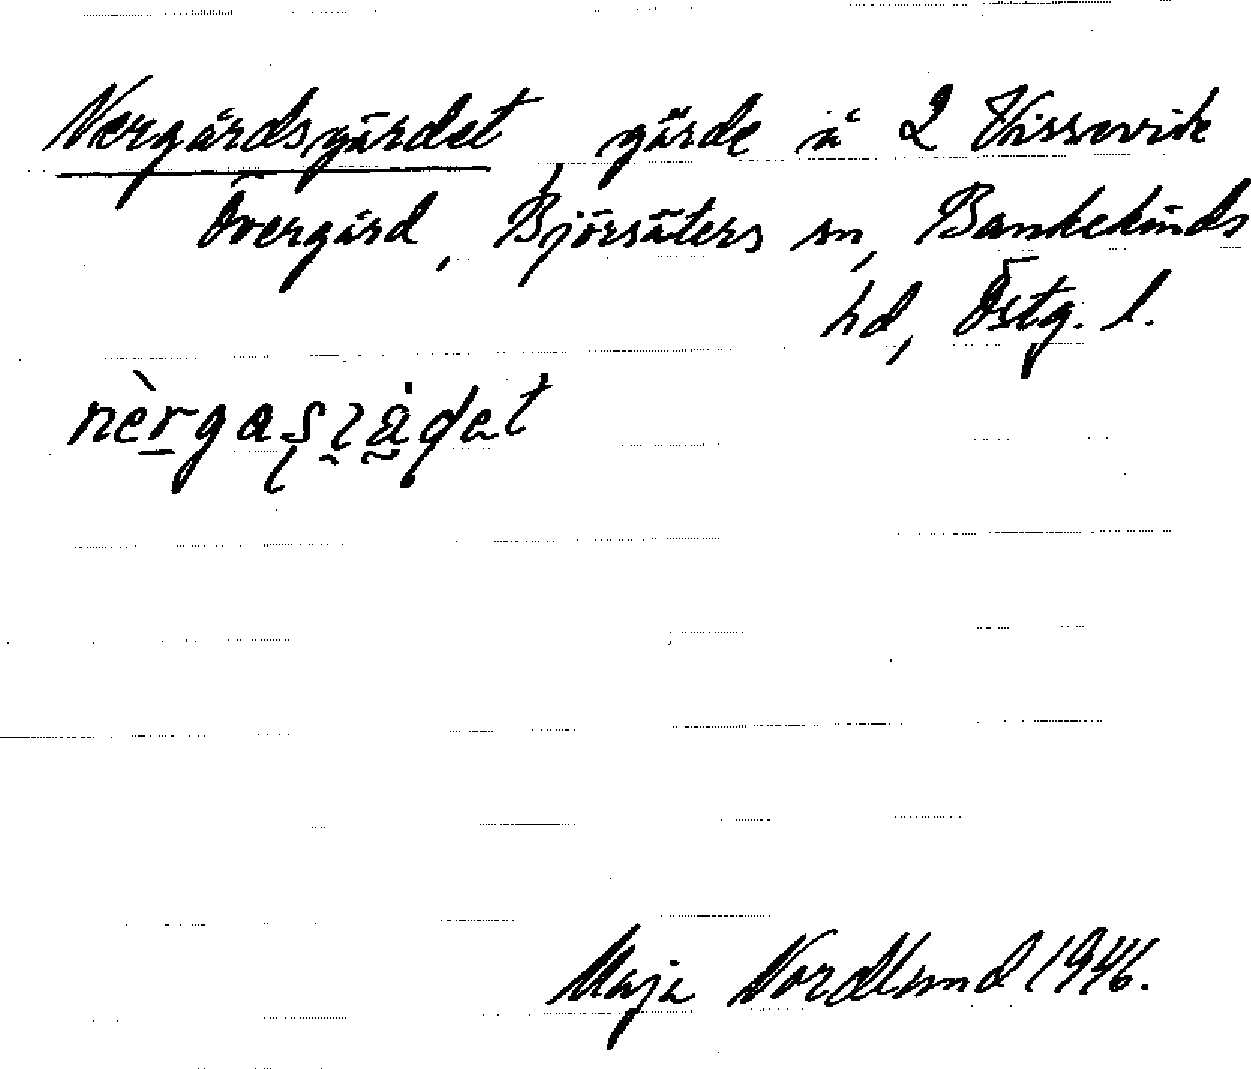 Nergårdsgärdet, gärde å 2 Vissevik
Övergård, Björsäters sn, Bankekinds
hd, Östg. l.
Maja Nordlund 1946.